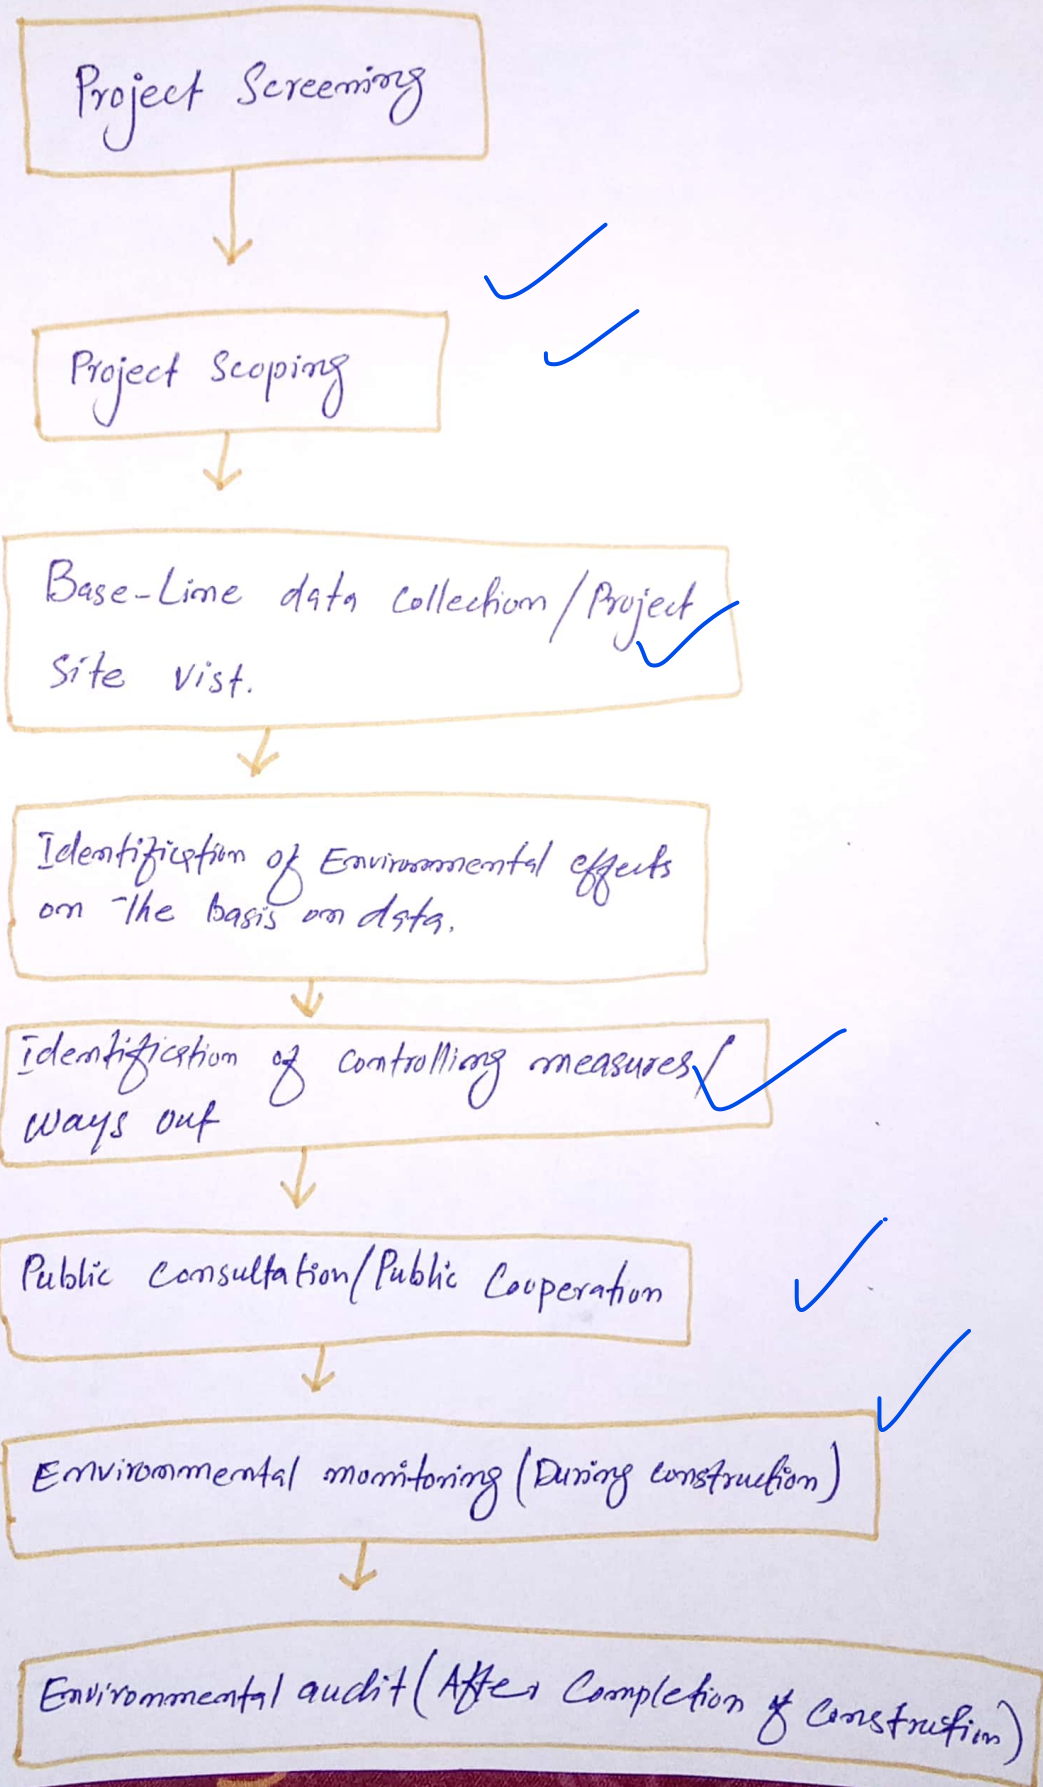 Project Screening
Project Scoping
Base-Line data Collection/Project
Site vist.
Identification of Environmental effects
on the basis on data.
identification of controlling measures/
ways out
Public consultation/Public Cooperation
Environmental monitoring (During construction)
Environmental audit (After Completion of Construction)